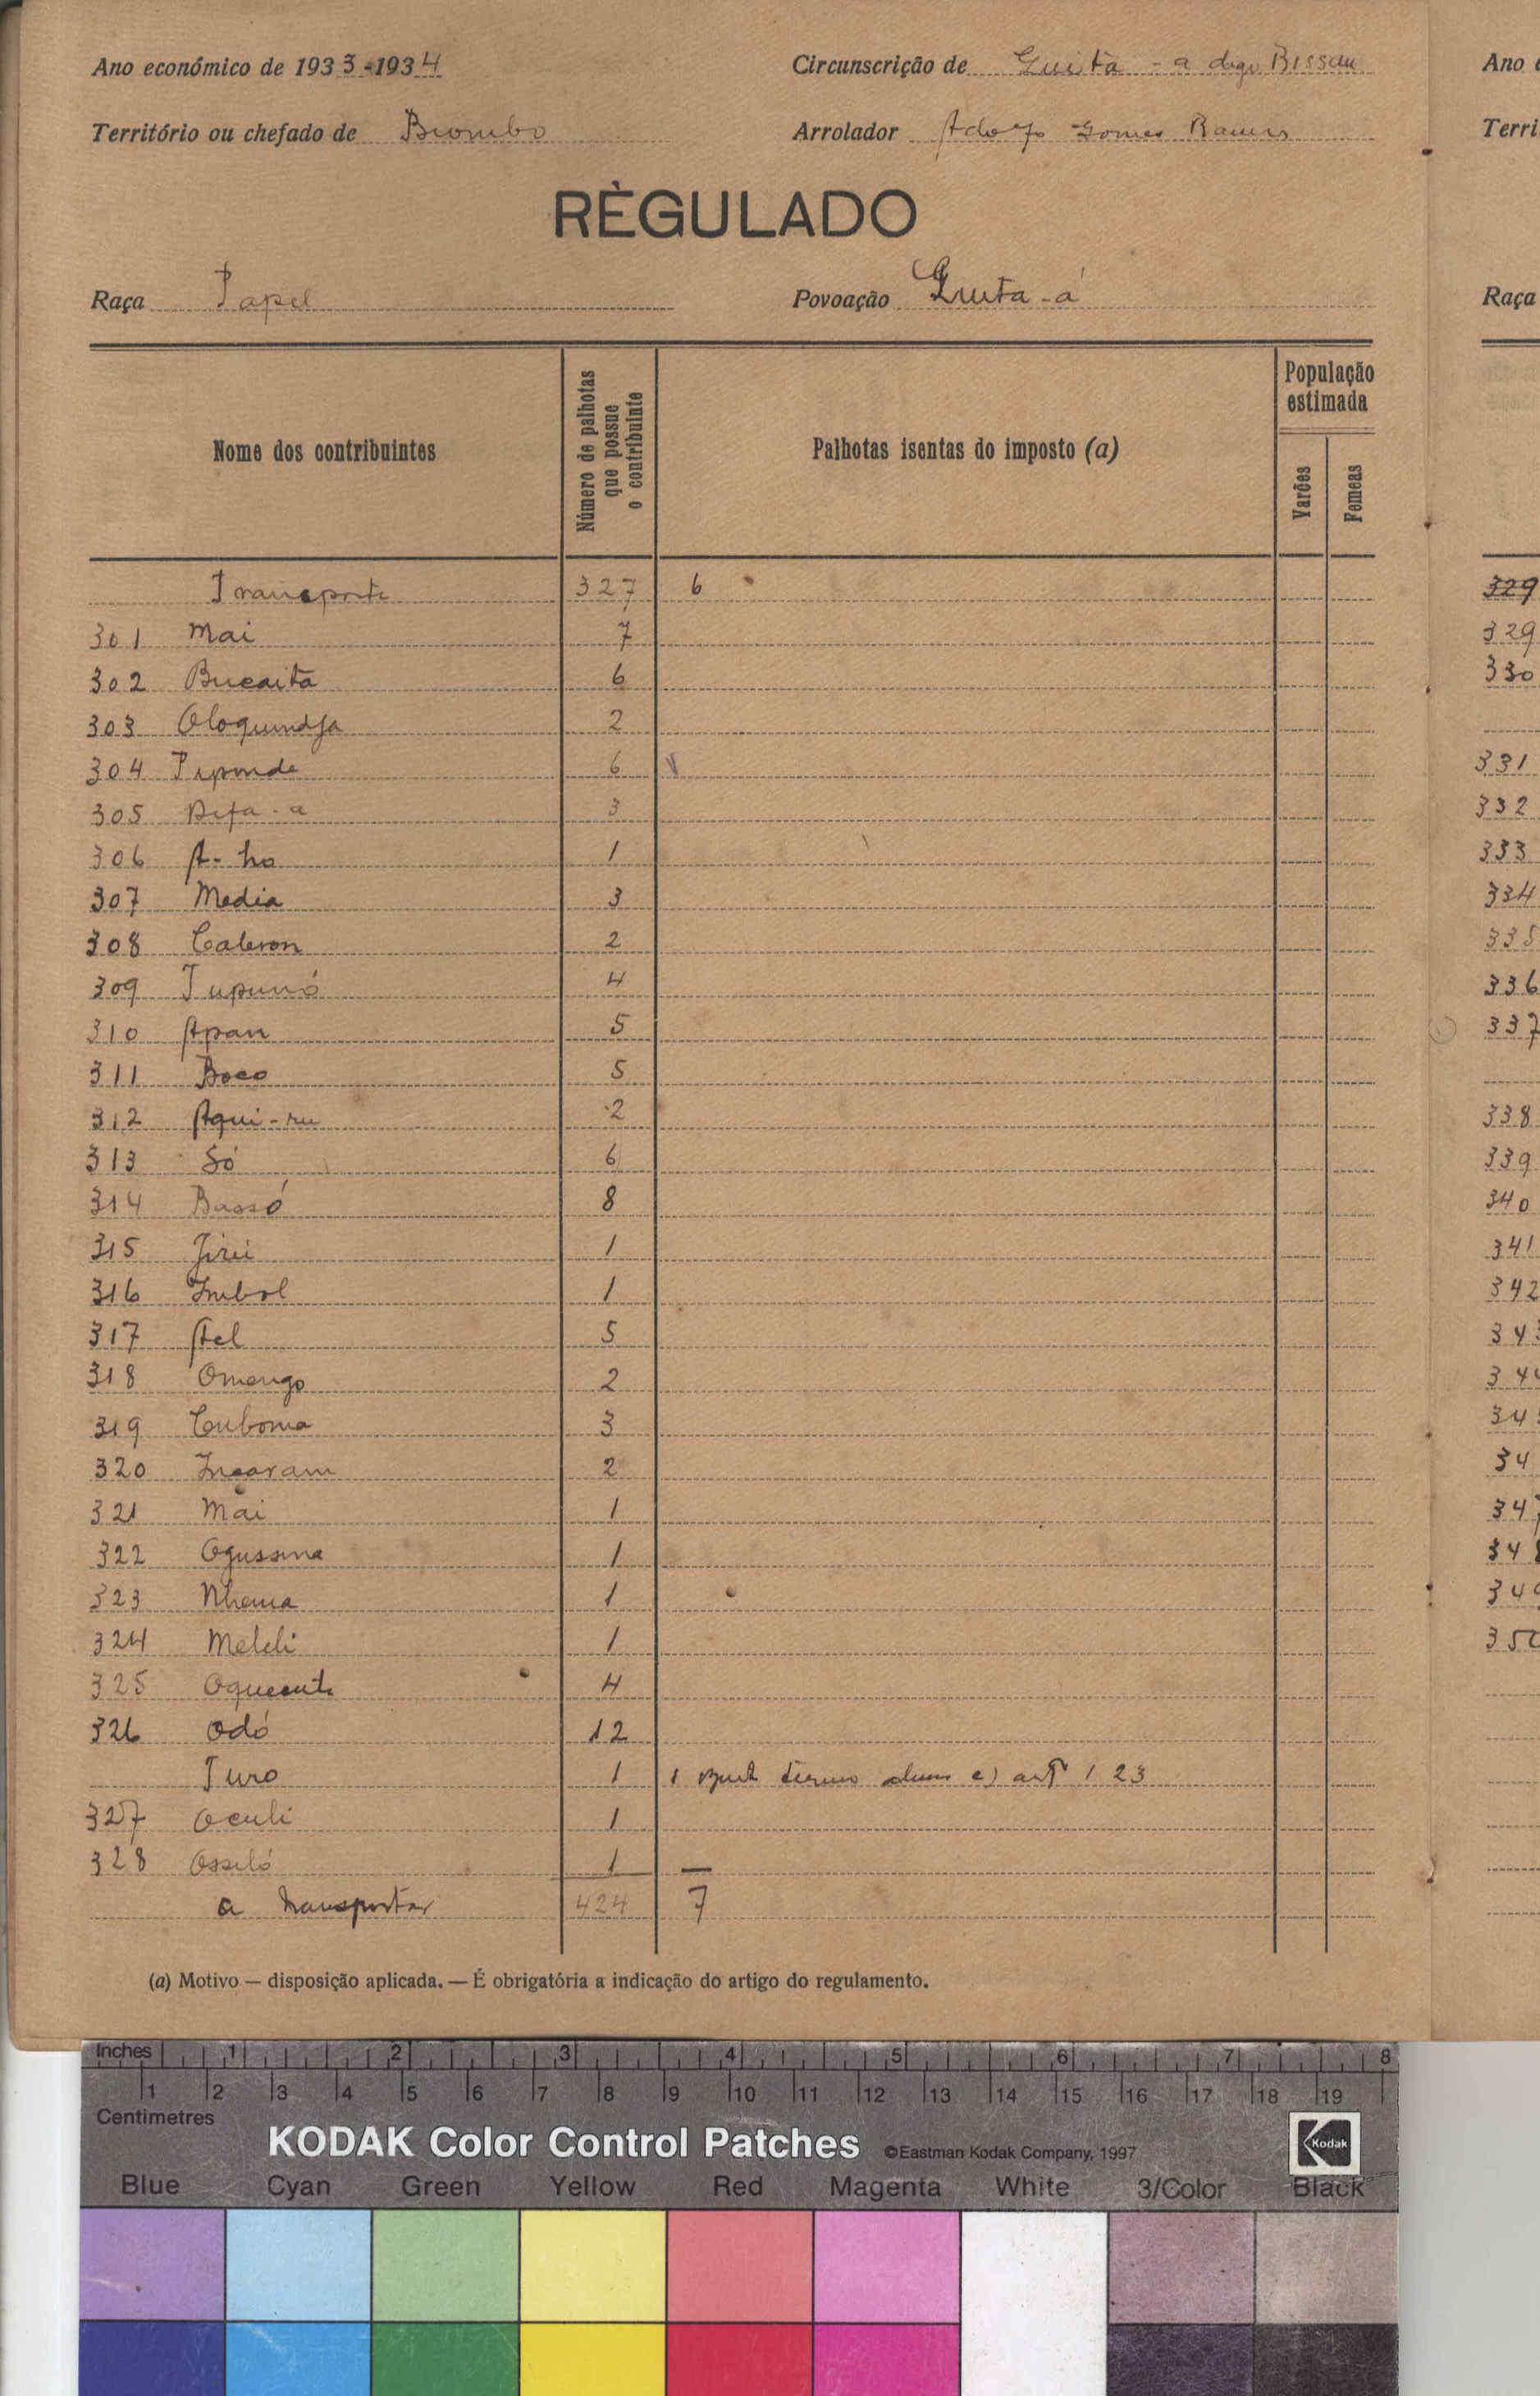 Ano económico de 1933-1934
Circunscrição de Guita - a digo Bissau
Território ou chefado de Biombo
Arrolador Adolfo Gomes Ramos
RÈGULADO
Raça Papel
Povoação Quita-á
Nome dos contribuintes
Número de palhotas que possue o contribuinte
Palhotas isentas do imposto (a)
População estimada
Varões
Femeas
Transporte 327 6
301 Mai 7
302 Bucaita 6
303 Oloquindja 2
304 Piponde 6
305 Difa-a 3
306 A-ho 1
307 Media 3
308 Caleron 2
309 Tupunó 4
310 Apan 5
311 Boco 5
312 Aqui-ru 2
313 Só 6
314 Bassó 8
315 Jirii 1
316 Imbol 1
317 Atel 5
318 Omongo 2
319 Cuboma 3
320 Incaram 2
321 Mai 1
322 Ogussma 1
323 Nhama 1
324 Meleli 1
325 4
326 Odó 12
Turo 1 1 c) artº 123
327 Oculi 1
328 Ossiló 1
a transportar 424 7
(a) Motivo — disposição aplicada. — É obrigatória a indicação do artigo do regulamento.
Ano
Terri
Raça
329
329
330
331
332
333
334
335
336
337
338
339
340
341
342
34
34
34
34
347
348
349
350
Inches 1 2 3 4 5 6 7 8
1 2 3 4 5 6 7 8 9 10 11 12 13 14 15 16 17 18 19
Centimetres
KODAK Color Control Patches ©Eastman Kodak Company, 1997
Kodak
Blue Cyan Green Yellow Red Magenta White 3/Color Black